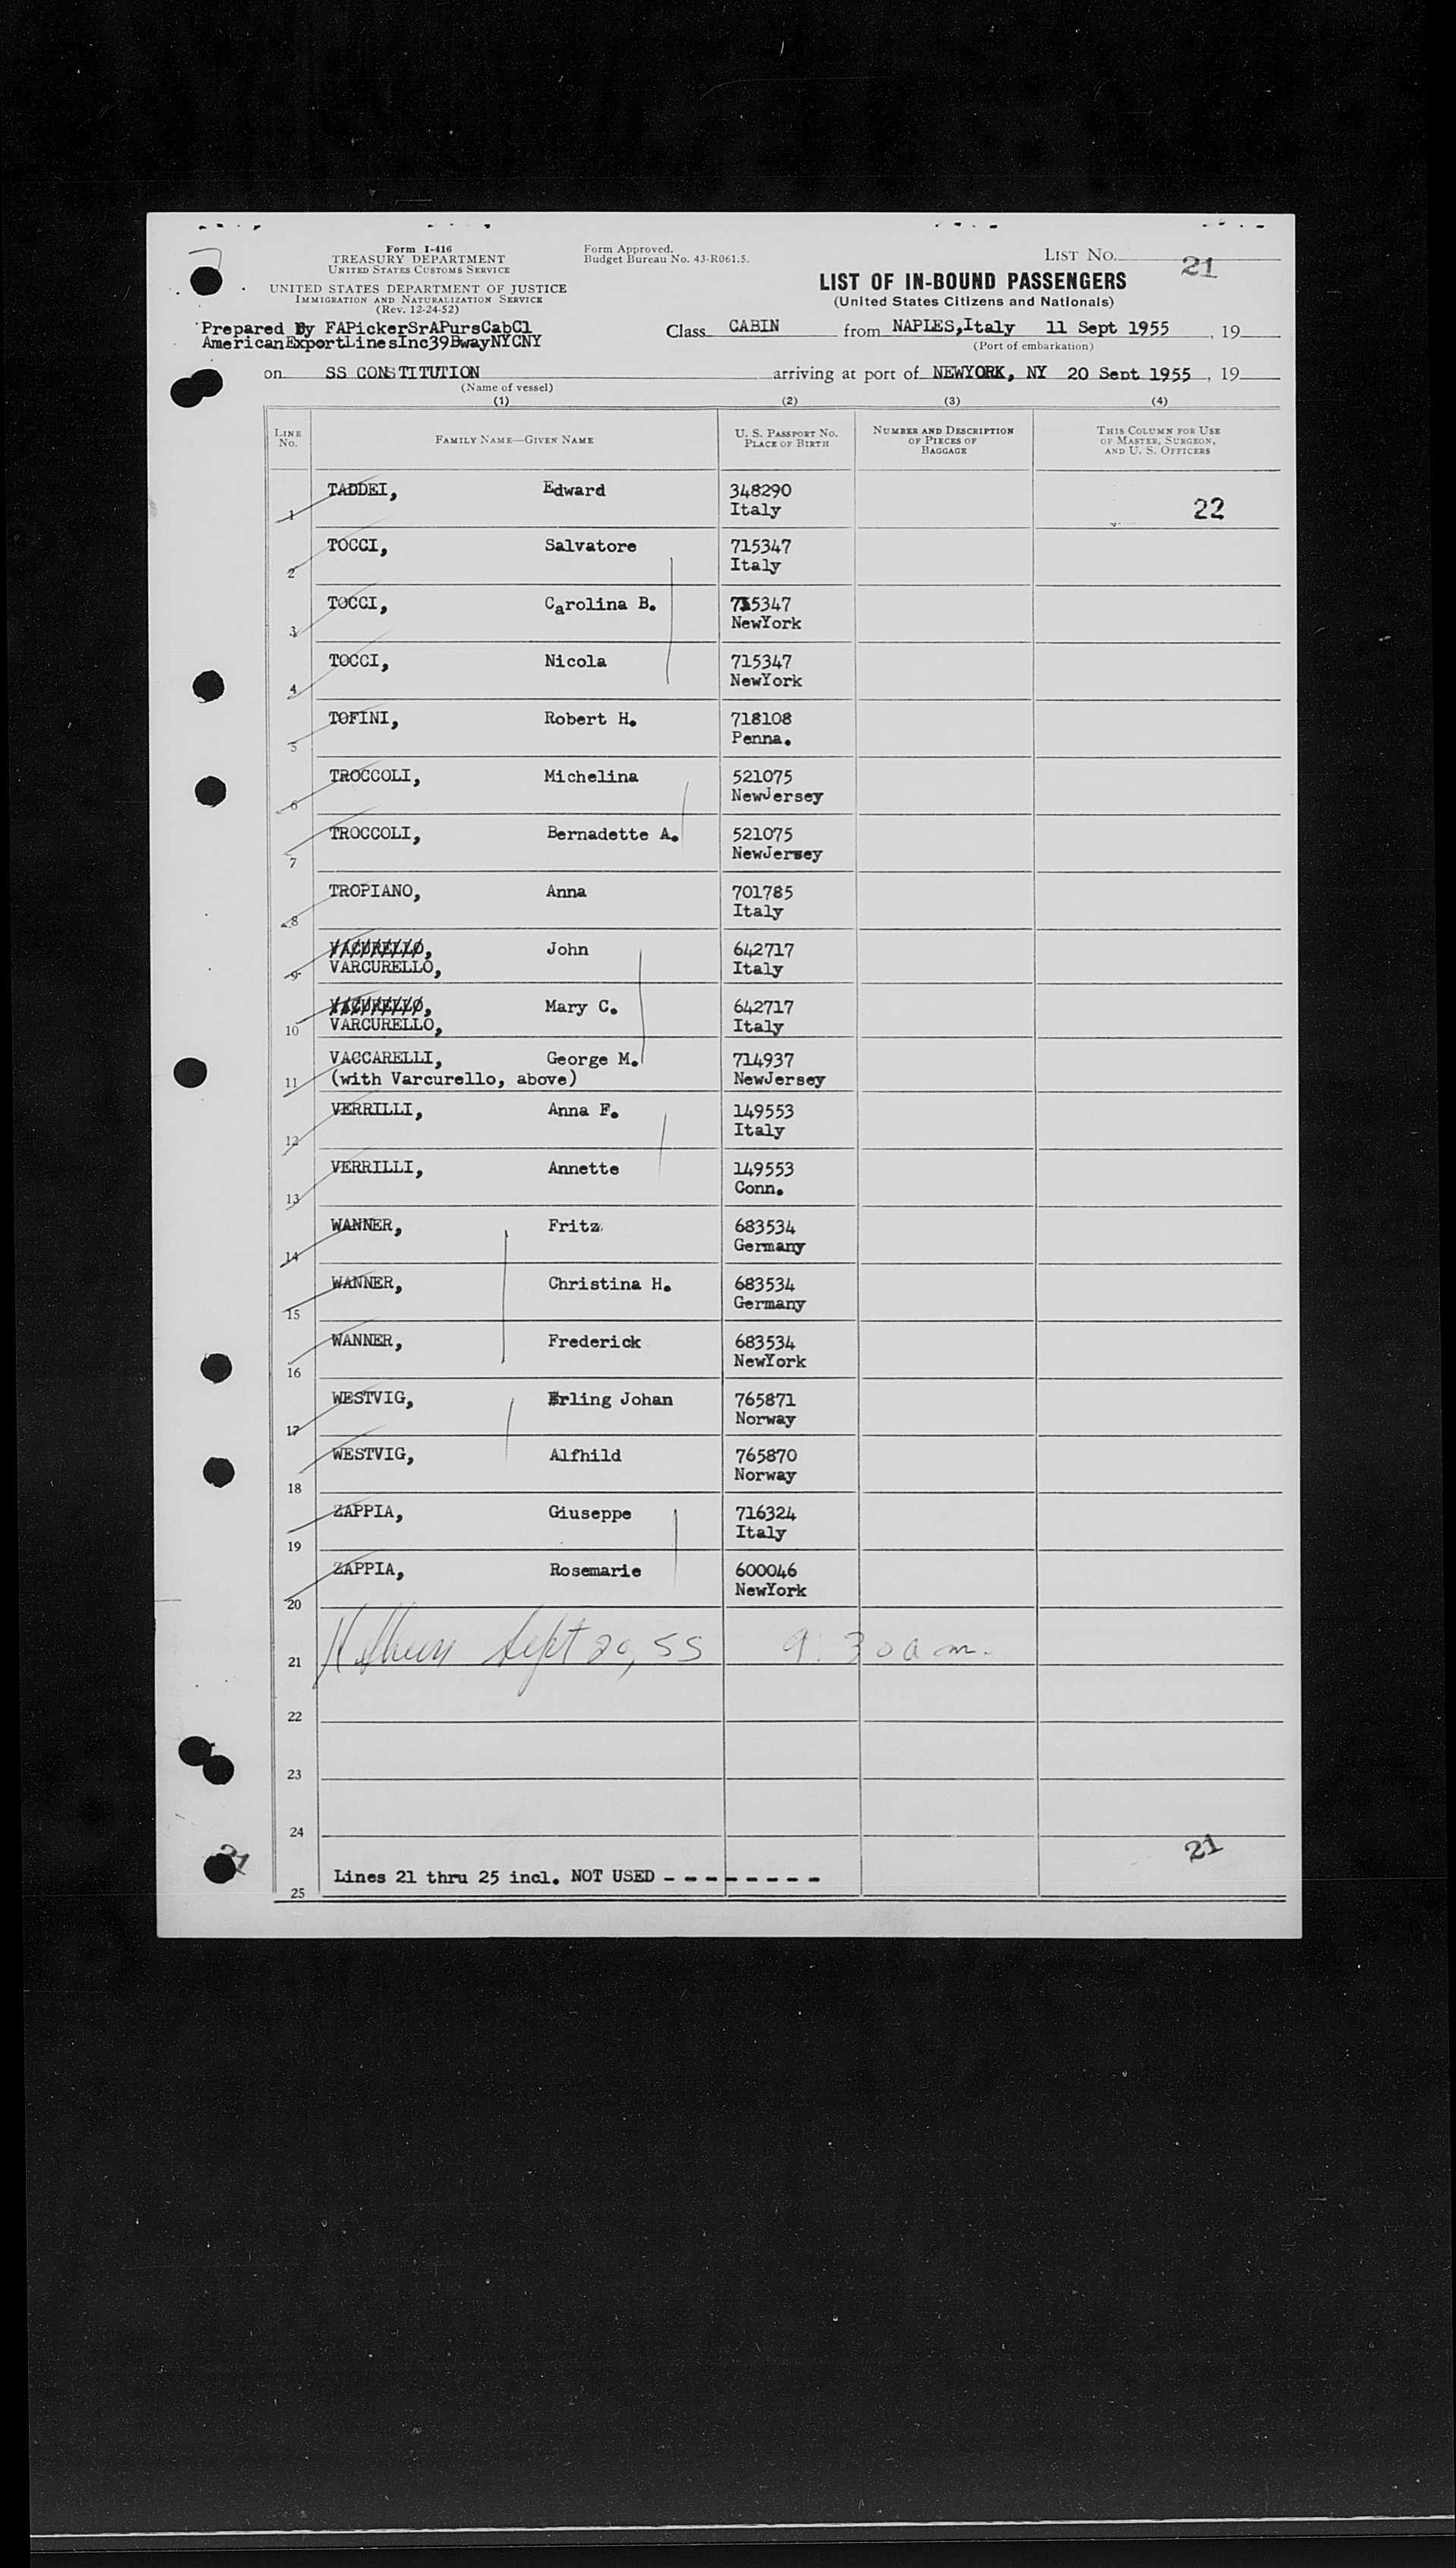 Form I-416
TREASURY DEPARTMENT
UNITED STATES CUSTOMS SERVICE
UNITED STATES DEPARTMENT OF JUSTICE
IMMIGRATION AND NATURALIZATION SERVICE
(Rev. 12-24-52)
Form Approved.
Budget Bureau No. 43-R061.5.
LIST NO. 21
LIST OF IN-BOUND PASSENGERS
(United States Citizens and Nationals)
Prepared By FAPickerSrAPursCabCl
AmericanExportLinesInc39BwayNYCNY
Class CABIN from NAPLES,Italy 11 Sept 1955, 19
(Port of embarkation)
on SS CONSTITUTION arriving at port of NEWYORK, NY 20 Sept 1955, 19
(Name of vessel)
(1) (2) (3) (4)
LINE NO. FAMILY NAME—GIVEN NAME U. S. PASSPORT NO. PLACE OF BIRTH NUMBER AND DESCRIPTION OF PIECES OF BAGGAGE THIS COLUMN FOR USE OF MASTER, SURGEON, AND U. S. OFFICERS
1 TADDEI, Edward 348290
Italy 22
2 TOCCI, Salvatore 715347
Italy
3 TOCCI, Carolina B. 715347
NewYork
4 TOCCI, Nicola 715347
NewYork
5 TOFINI, Robert H. 718108
Penna.
6 TROCCOLI, Michelina 521075
NewJersey
7 TROCCOLI, Bernadette A. 521075
NewJersey
8 TROPIANO, Anna 701785
Italy
9 VACURELLO, John 642717
VARCURELLO, Italy
10 VACURELLO, Mary C. 642717
VARCURELLO, Italy
11 VACCARELLI, George M. 714937
(with Varcurello, above) NewJersey
12 VERRILLI, Anna F. 149553
Italy
13 VERRILLI, Annette 149553
Conn.
14 WANNER, Fritz 683534
Germany
15 WANNER, Christina H. 683534
Germany
16 WANNER, Frederick 683534
NewYork
17 WESTVIG, Erling Johan 765871
Norway
18 WESTVIG, Alfhild 765870
Norway
19 ZAPPIA, Giuseppe 716324
Italy
20 ZAPPIA, Rosemarie 600046
NewYork
21 Sept 20, 55 9:30 a m.
22
23
24
21
21
25 Lines 21 thru 25 incl. NOT USED - - - - - - - -